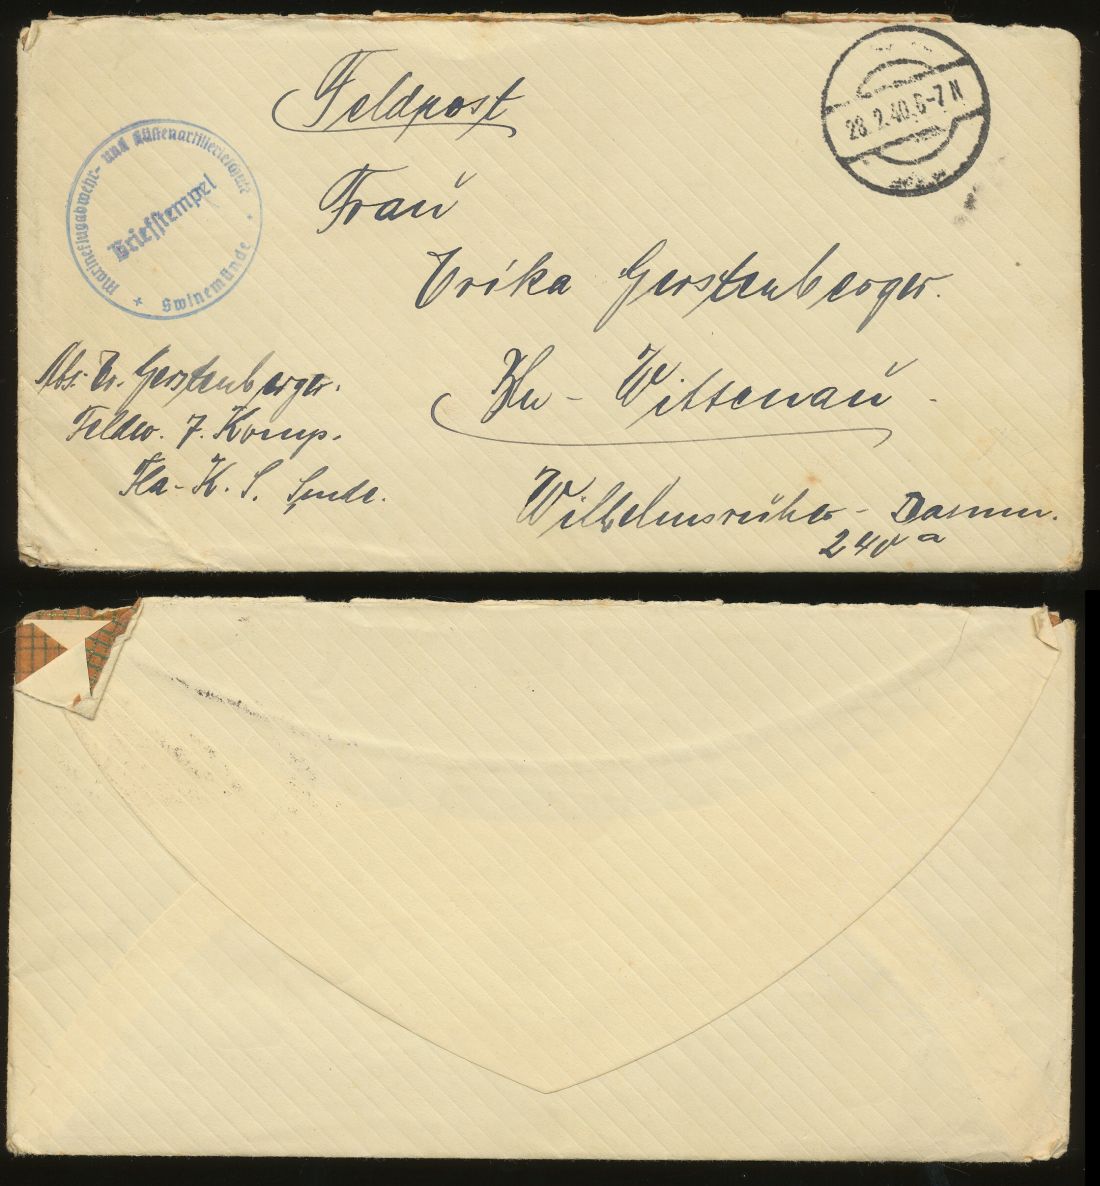 Feldpost
28.2.40. 6-7 N
Marineflugabwehr- und Küstenartillerieschule
Briefstempel
+ Swinemünde +
Frau
Erika Gerstenberger.
Bln - Wittenau
Wilhelmsruher - Damm.
240 a
Abs. Gerstenberger.
Feldw. 7. Komp.
Fla - K. S. Smde.